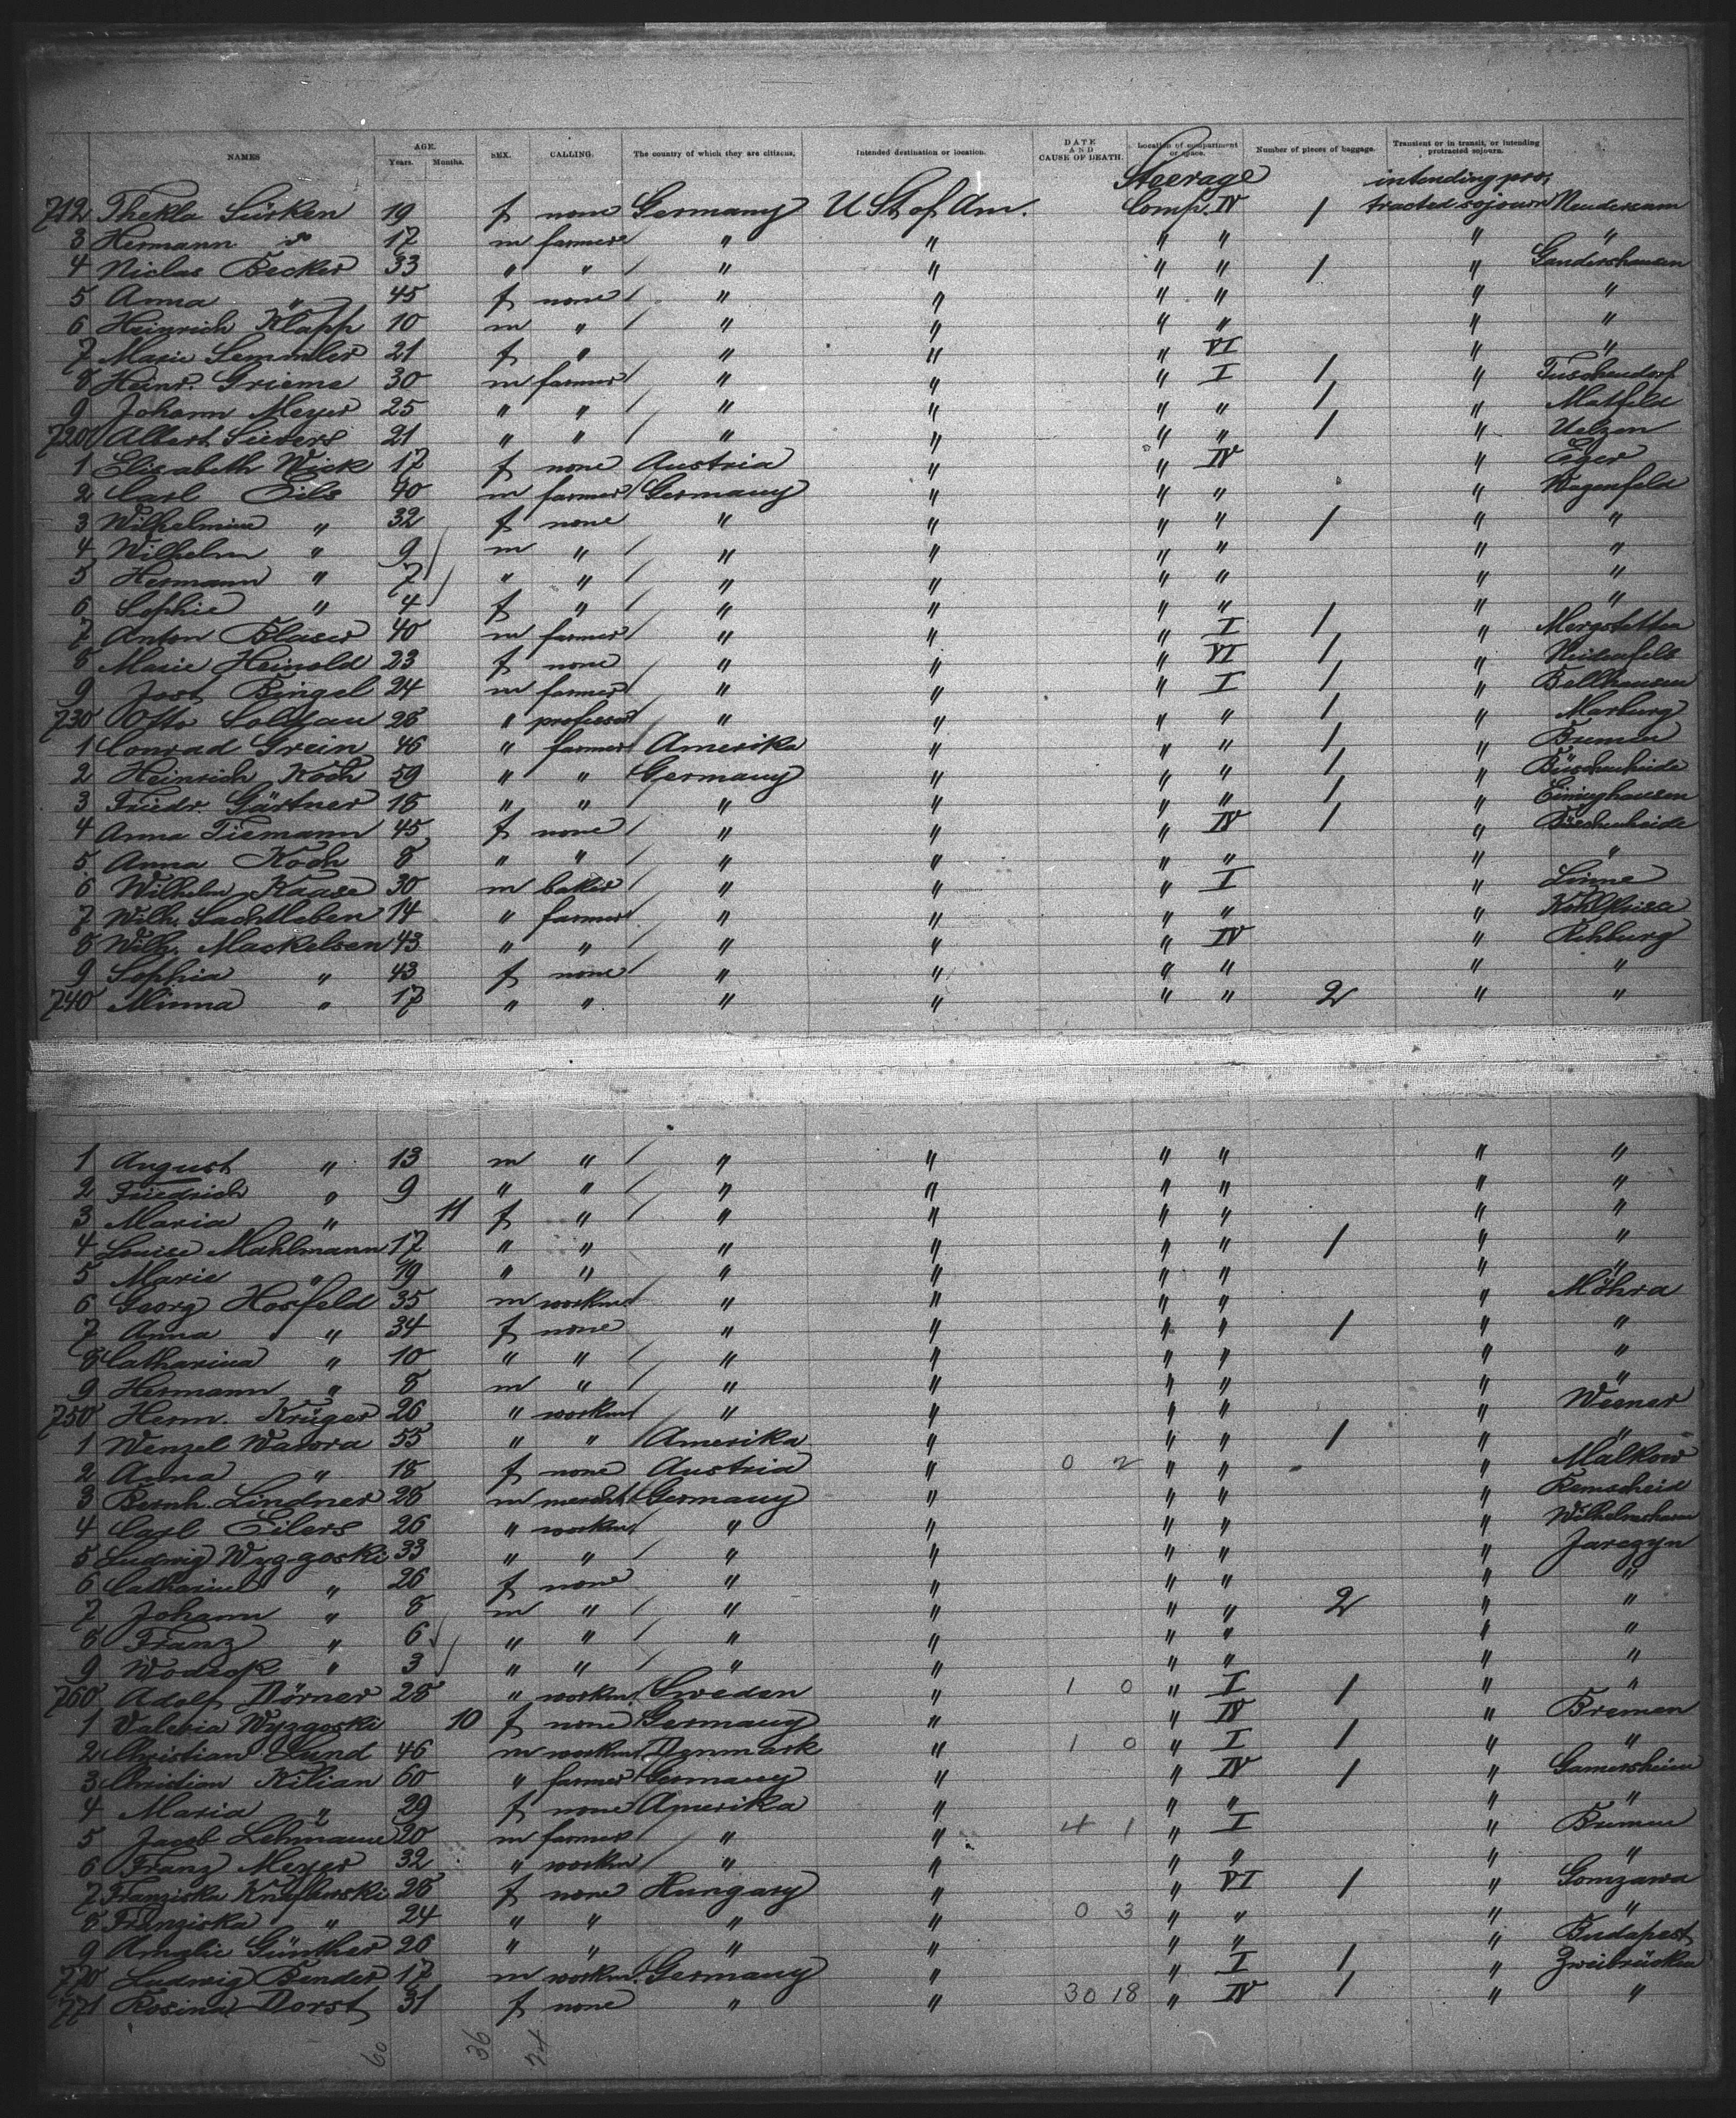 NAMES AGE. Years. Months. SEX. CALLING. The country of which they are citizens. Intended destination or location. DATE AND CAUSE OF DEATH. Location of compartment or space. Number of pieces of baggage. Transient or in transit, or intending protracted sojourn.
Steerage intending pro-
712 Thekla Sürken 19 f none Germany U St of Am. Comp. IV 1 tracted sojourn
3 Hermann do 17 m farmer " " " " " "
4 Niclas Becker 33 " " / " " " " 1 " Gandershausen
5 Anna " 45 f none / " " " " " "
6 Heinrich Klapp 10 m " / " " " " " "
7 Marie Semmler 21 f " " " " VI " "
8 Heinr. Grieme 30 m farmer / " " " I 1 " Tuschendorf
9 Johann Meyer 25 " " / " " " " 1 " Matfeld
720 Albert Sievers 21 " " / " " " " 1 " Uelzen
1 Elisabeth Wick 17 f none Austria " " IV " Eger
2 Carl Eils 40 m farmer / Germany " " " " Wagenfeld
3 Wilhelmine " 32 f none " " " " 1 " "
4 Wilhelm " 9 / m " / " " " " " "
5 Hermann " 7 / " " / " " " " " "
6 Sophie " 4 / f " / " " " " " "
7 Anton Blaser 40 m farmer / " " " I 1 " Mergstetten
8 Marie Heinold 23 f none " " " VI 1 " Neidenfels
9 Jost Bingel 24 m farmer / " " " I 1 " Bellhausen
730 Otto Soldau 28 " professor / " " " " 1 " Marburg
1 Conrad Grein 46 " farmer / Amerika " " " 1 " Bremen
2 Heinrich Koch 59 " " Germany " " " 1 " Büschenheide
3 Friedr. Gärtner 18 " " / " " " " 1 " Eininghausen
4 Anna Tiemann 45 f none / " " " IV 1 " Büschenheide
5 Anna Koch 8 " " / " " " " " "
6 Wilhelm Kaase 30 m baker / " " " I " Linne
7 Wilh. Sachtleben 14 " farmer / " " " " "
8 Wilh. Mackelsen 43 " " / " " " IV " Rehburg
9 Sophia " 43 f none / " " " " " "
740 Minna " 17 " " " " " " 2 " "
1 August " 13 m " / " " " " " "
2 Friedrich " 9 " " / " " " " " "
3 Maria " 11 f " / " " " " " "
4 Louise Mahlmann 17 " " " " " " 1 " "
5 Marie " 19 " " " " " " " "
6 Georg Hosfeld 35 m workm / " " " " " Möhra
7 Anna " 34 f none " " " " 1 " "
8 Catharina " 10 " " / " " " " " "
9 Hermann " 8 m " / " " " " " "
750 Herm. Krüger 26 " workm / " " " " " Weener
1 Wenzel Wavora 55 " " / Amerika " " " 1 " "
2 Anna " 18 f none Austria " 0 2 " " " Malkow
3 Bernh. Lindner 28 m mercht / Germany " " " " Remscheid
4 Carl Eilers 26 " workm / " " " " " Wilhelmshaven
5 Ludwig Wyzgoski 33 " " / " " " " " Jarczyn
6 Catharine " 26 f none " " " " " "
7 Johann " 8 m " / " " " " 2 " "
8 Franz " 6 / " " / " " " " " "
9 Wodeck " 3 / " " / " " " " " "
760 Adolf Dörner 28 " workm / Sweden " 1 0 " I 1 " "
1 Valeria Wyzgoski 10 f none Germany " " IV " Bremen
2 Christian Lund 46 m workm Denmark " 1 0 " I 1 " "
3 Christian Kilian 60 " farmer / Germany " " IV 1 " Gamersheim
4 Maria " 29 f none Amerika " " " " "
5 Jacob Lehmann 20 m farmer " " 4 1 " I " Bremen
6 Franz Meyer 32 " workm / " " " " " "
7 Franziska Knaflewski 28 f none Hungary " " VI 1 " Gomzawa
8 Franziska " 24 " " " " 0 3 " " " "
9 Amalie Günther 26 " " " " " " " Budapest
770 Ludwig Bender 17 m workm. Germany " " I 1 " Zweibrücken
771 Rosina Dorst 31 f none " " 30 18 " IV 1 " "
60 36 24